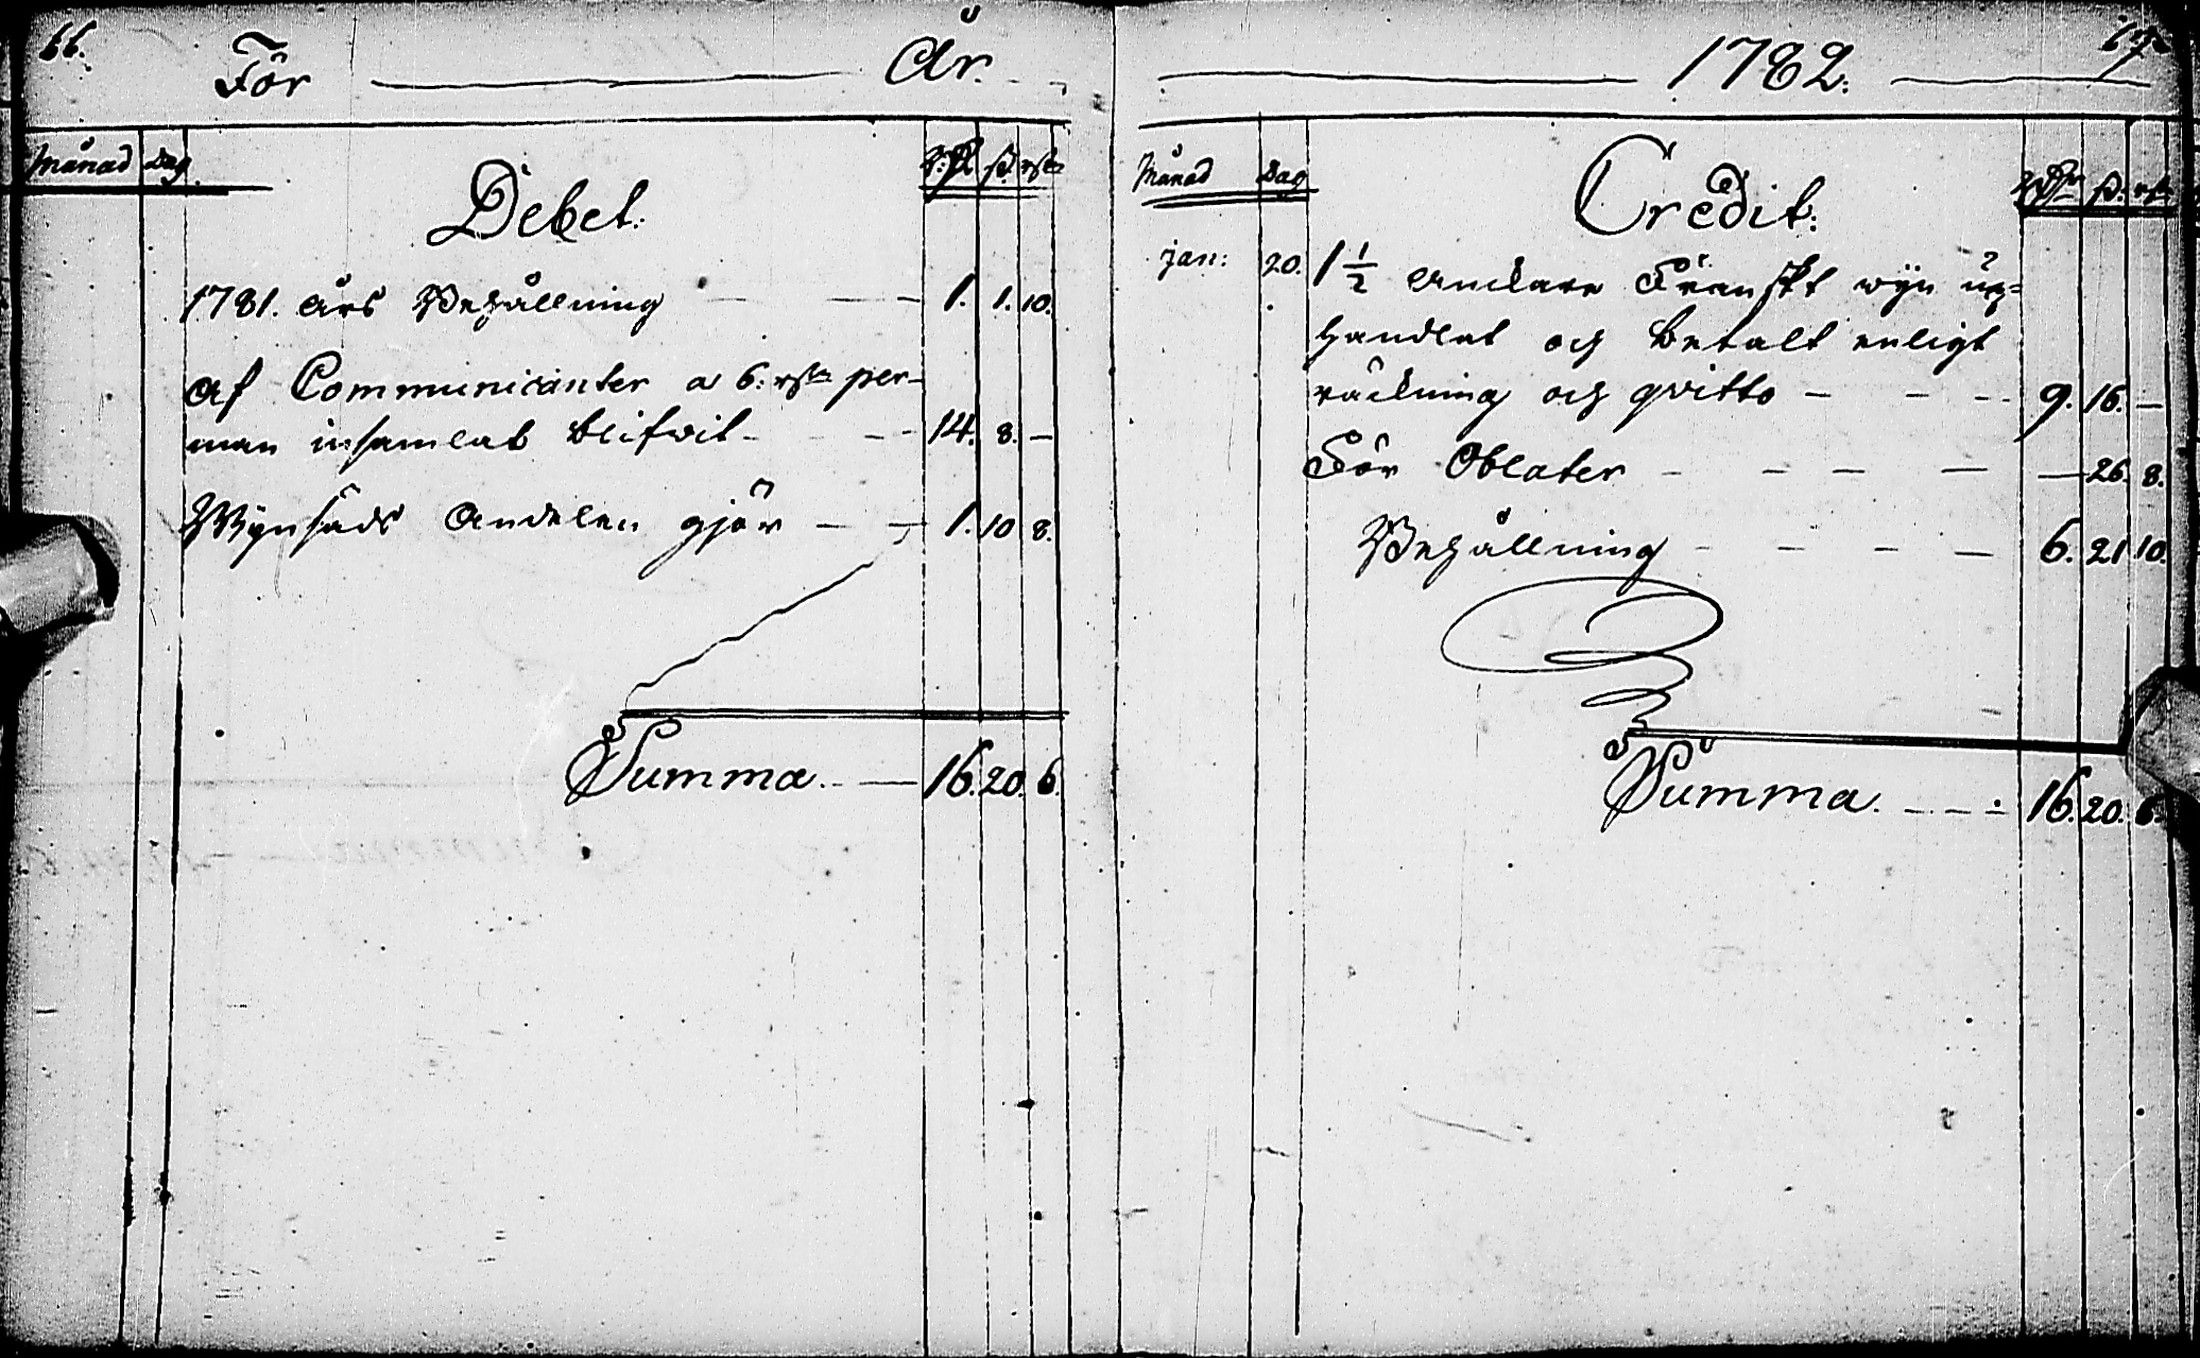 66.
För År.
Månad Dag R:dr ß. rst:
Debet.
1781. års Behållning — — — 1. 1. 10.
af Communicanter a 6: rst: per-
man insamlat blifwit - — - - 14. 8. —
Wynsäds Andelen gjör — — 1. 10 8.
Summa. — 16. 20. 6.
67.
1782.
Månad Dag Rdr ß: rst:
Credit.
jan: 20. 1 1/2 Anckare Franskt wyn up=
handlat och betalt enligt
räckning och qvitto — - -- 9. 16. —
För Oblater — — — — — 26. 8.
Behållning - - - — 6. 21 10.
Summa. - - - 16. 20. 6.